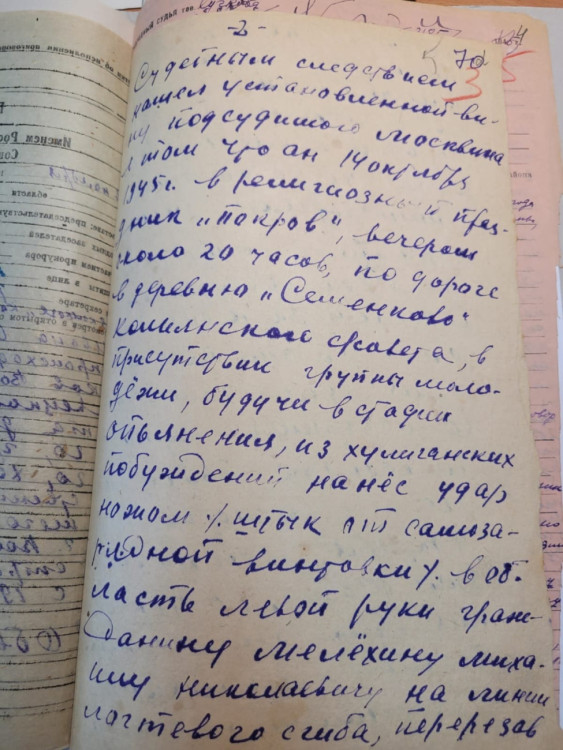 -2-
70
Судебным следствием
нашел установленной ви-
ну подсудимого Москвина
в том что он 14 октября
1945г. в религиозный праз-
дник „Покров", вечером
около 20 часов, по дороге
в деревню „Семенково"
с/совета, в
присутствии группы моло-
дёжи, будучи в стадии
опьянения, из хулиганских
побуждений нанёс удар
ножом ⁒ штык от самоза-
рядной винтовки ⁒ в об-
ласть левой руки граж-
данину Мелёхину Миха-
илу Николаевичу на линии
локтевого сгиба, перерезав